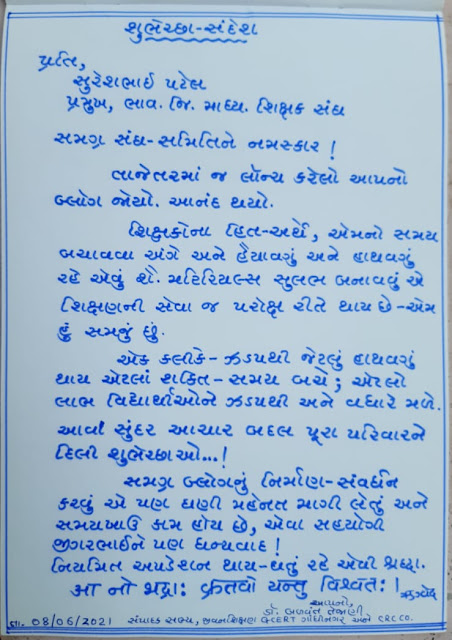 શુભેચ્છા-સંદેશ
પ્રતિ,
સુરેશભાઈ પટેલ
પ્રમુખ, ભાવ. જિ. માધ્ય. શિક્ષક સંઘ
સમગ્ર સંઘ-સમિતિને નમસ્કાર !
તાજેતરમાં જ લૉન્ચ કરેલો આપનો
બ્લોગ જોયો. આનંદ થયો.
શિક્ષકોના હિત-અર્થે, એમનો સમય
બચાવવા અંગે અને હૈયાવગું અને હાથવગું
રહે એવું શૈ. મટિરિયલ્સ સુલભ બનાવવું એ
શિક્ષણની સેવા જ પરોક્ષ રીતે થાય છે -એમ
હું સમજું છું.
એક ક્લીકે- ઝડપથી જેટલું હાથવગું
થાય એટલાં શક્તિ-સમય બચે; એટલો
લાભ વિદ્યાર્થીઓને ઝડપથી અને વધારે મળે.
આવાં સુંદર આચાર બદલ પૂરા પરિવારને
દિલી શુભેચ્છાઓ...!
સમગ્ર બ્લોગનું નિર્માણ-સંવર્ધન
કરવું એ પણ ઘણી મહેનત માગી લેતું અને
સમયખાઉ કામ હોય છે, એવા સહયોગી
જીગરભાઈને પણ ધન્યવાદ !
નિયમિત અપડેશન થાય-થતું રહે એવી શ્રદ્ધા.
આ નો ભદ્રાઃ ક્રતવો યન્તુ વિશ્વતઃ ! ઋગ્વેદ
આપનો,
ડૉ. બળવંત તેજાણી
તા. 08/06/2021 સંપાદક સભ્ય, જીવનશિક્ષણ GCERT ગાંધીનગર અને CRCCO.